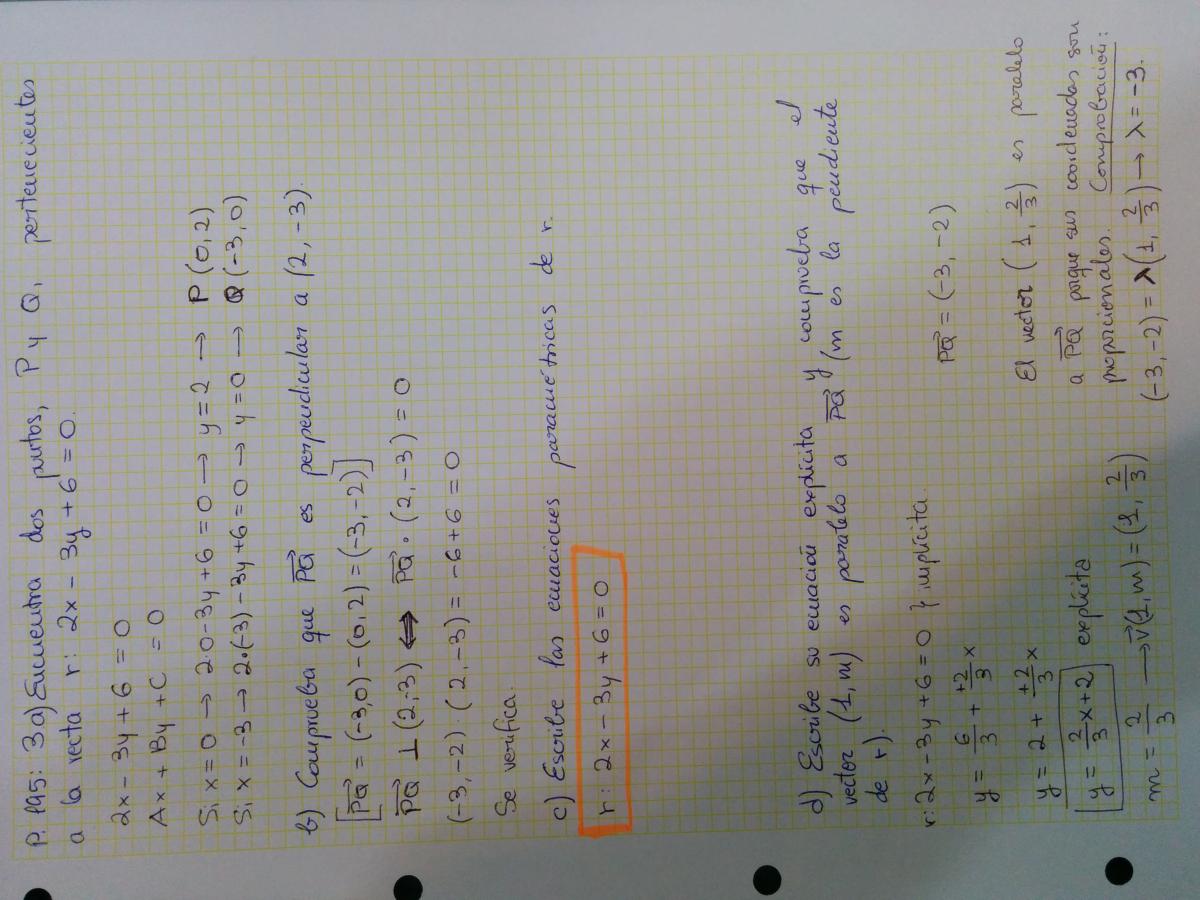 P. 195: 3 a) Encuentra dos puntos, P y Q, pertenecientes
a la recta r: 2x - 3y + 6 = 0.
2x - 3y + 6 = 0
Ax + By + C = 0
Si x = 0 → 2·0 - 3y + 6 = 0 → y = 2 → P (0, 2)
Si x = -3 → 2·(-3) - 3y + 6 = 0 → y = 0 → Q (-3, 0)
b) Comprueba que PQ⃗ es perpendicular a (2, -3).
[PQ⃗ = (-3,0) - (0, 2) = (-3, -2)]
PQ⃗ ⊥ (2,-3) ⟺ PQ⃗ · (2, -3) = 0
(-3, -2) · (2, -3) = -6 + 6 = 0
Se verifica.
c) Escribe las ecuaciones paramétricas de r.
r: 2x - 3y + 6 = 0
d) Escribe su ecuación explícita y comprueba que el
vector (1, m) es paralelo a PQ⃗ (m es la pendiente
de r).
r: 2x - 3y + 6 = 0 } implícita.
y = 6/3 + +2/3 x
PQ⃗ = (-3, -2)
y = 2 + +2/3 x
El vector (1, 2/3) es paralelo
[y = 2/3 x + 2] explícita
a PQ⃗ porque sus coordenadas son
proporcionales. Comprobación:
m = 2/3 → v⃗ (1, m) = (1, 2/3)
(-3, -2) = λ (1, 2/3) → λ = -3.